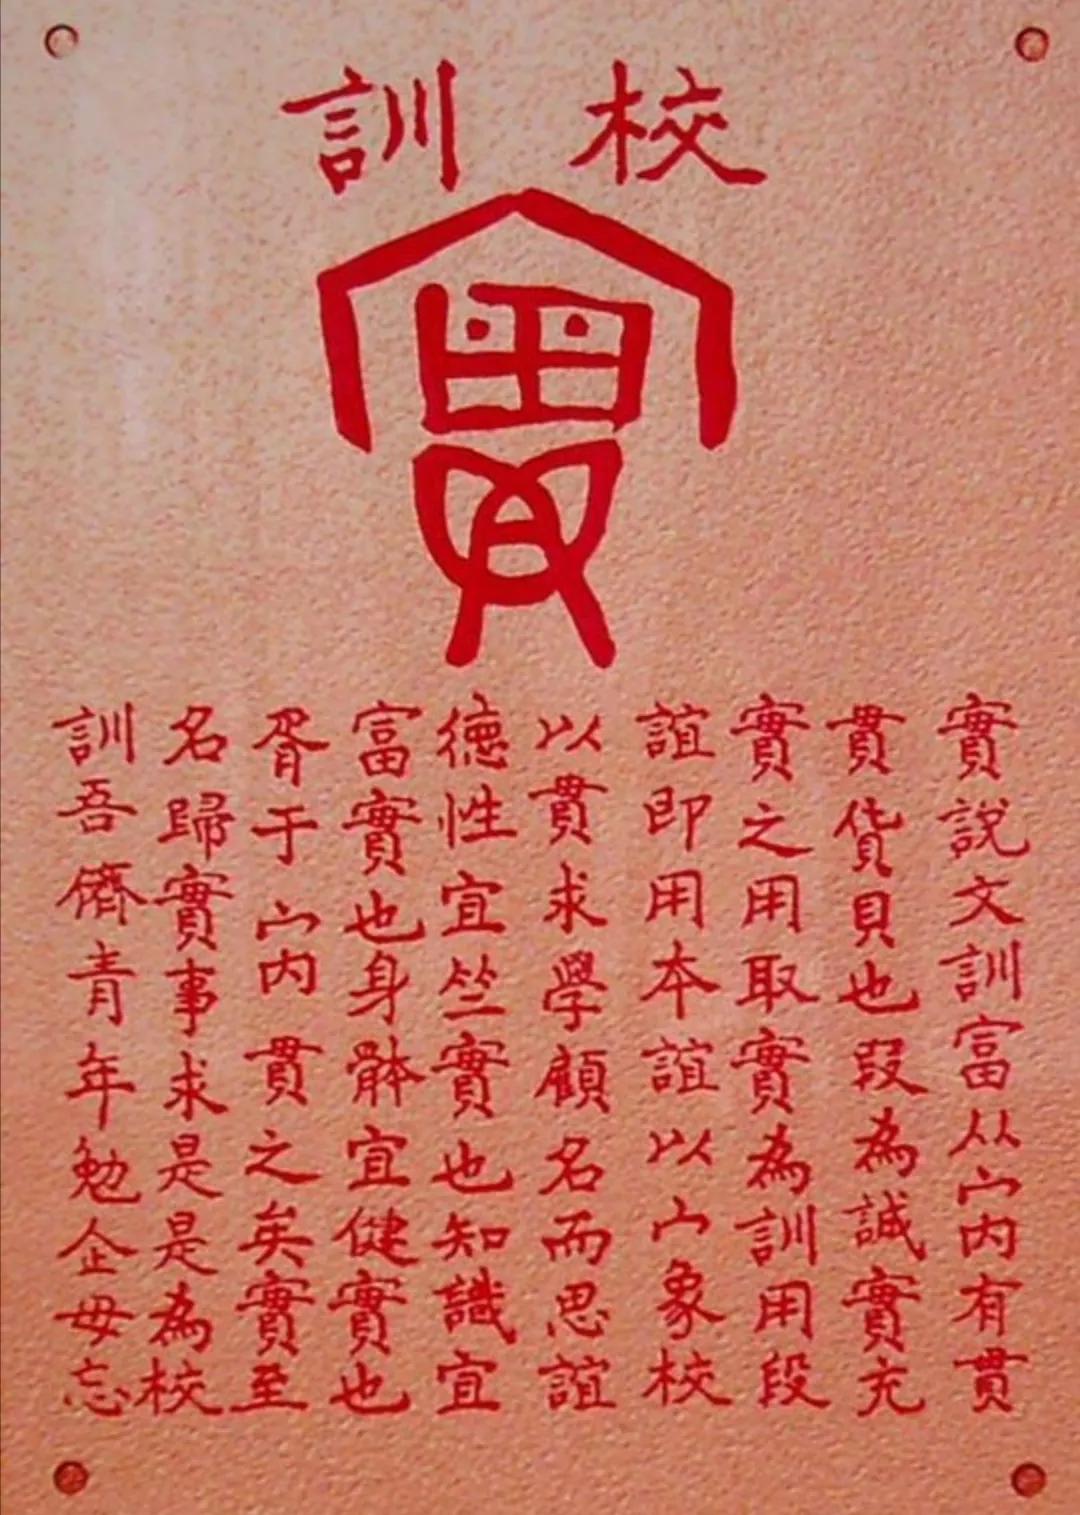 校訓
實
實說文訓富从宀内有貫
貫貨貝也叚為誠實充
實之用取實為訓用段
誼即用本誼以宀象校
以貫求學顧名而思誼
德性宜竺實也知識宜
富實也身骵宜健實也
胥于宀内貫之矣實至
名歸實事求是是為校
訓吾儕青年勉企毋忘